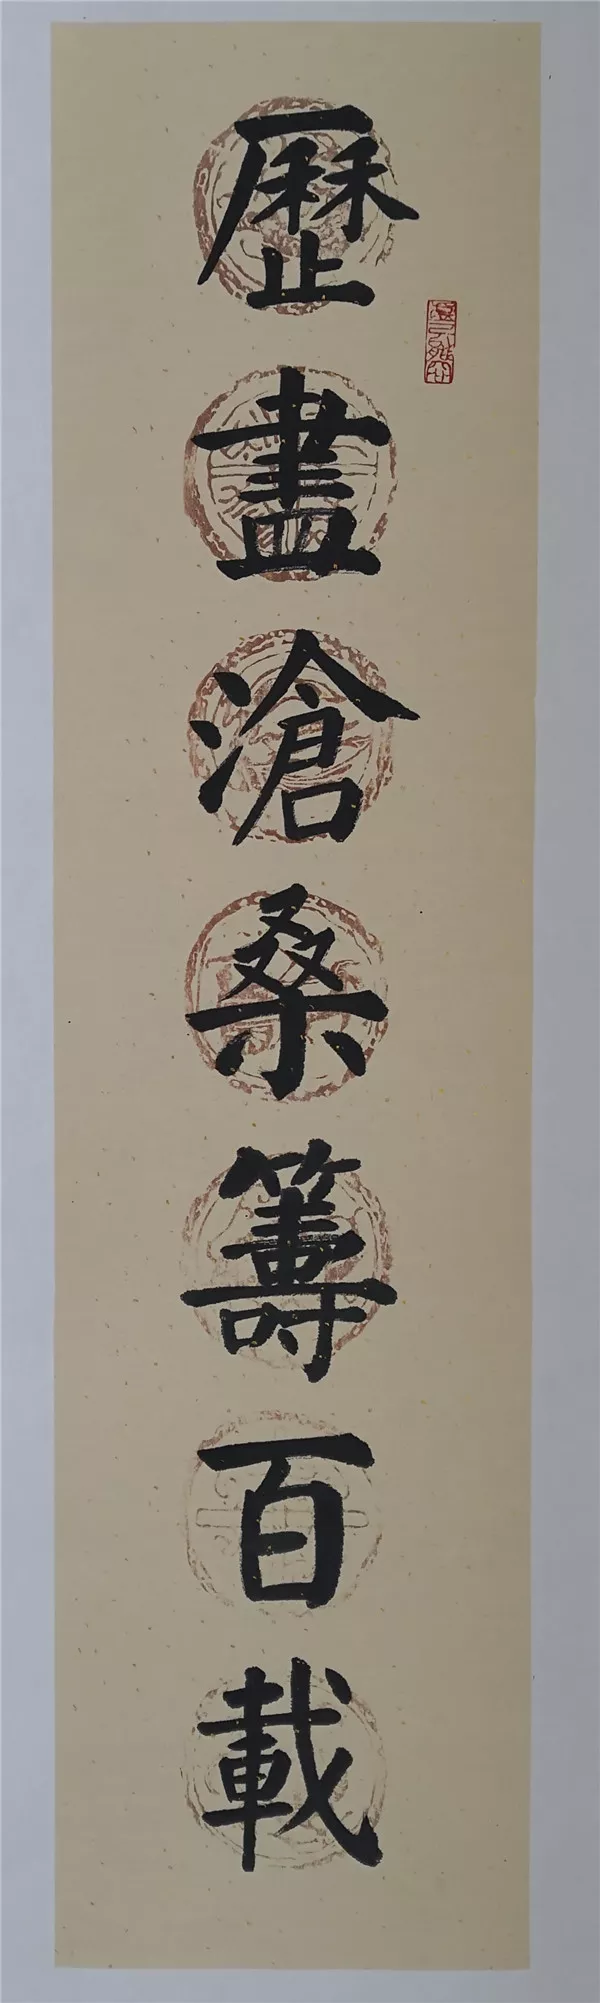 歷盡滄桑籌百載